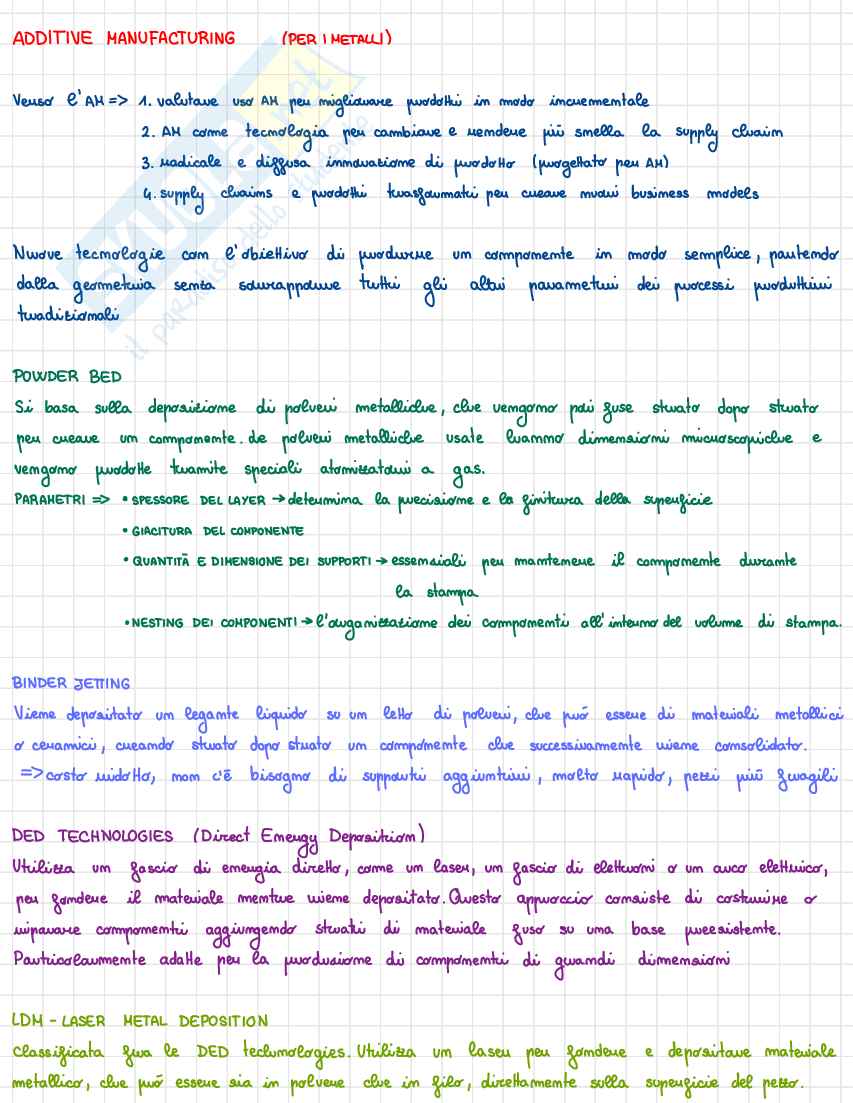 ADDITIVE MANUFACTURING (PER I METALLI)
Verso l'AM => 1. valutare uso AM per migliorare prodotti in modo incrementale
2. AM come tecnologia per cambiare e rendere più snella la supply chain
3. radicale e diffusa innovazione di prodotto (progettato per AM)
4. supply chains e prodotti trasformati per creare nuovi business models
Nuove tecnologie con l'obiettivo di produrre un componente in modo semplice, partendo
dalla geometria senza sovrapporre tutti gli altri parametri dei processi produttivi
tradizionali
POWDER BED
Si basa sulla deposizione di polveri metalliche, che vengono poi fuse strato dopo strato
per creare un componente. Le polveri metalliche usate hanno dimensioni microscopiche e
vengono prodotte tramite speciali atomizzatori a gas.
PARAMETRI => • SPESSORE DEL LAYER → determina la precisione e la finitura della superficie
• GIACITURA DEL COMPONENTE
• QUANTITÀ E DIMENSIONE DEI SUPPORTI → essenziali per mantenere il componente durante
la stampa
• NESTING DEI COMPONENTI → l'organizzazione dei componenti all'interno del volume di stampa.
BINDER JETTING
Viene depositato un legante liquido su un letto di polveri, che può essere di materiali metallici
o ceramici, creando strato dopo strato un componente che successivamente viene consolidato.
=> costo ridotto, non c'è bisogno di supporti aggiuntivi, molto rapido, pezzi più fragili
DED TECHNOLOGIES (Direct Energy Deposition)
Utilizza un fascio di energia diretto, come un laser, un fascio di elettroni o un arco elettrico,
per fondere il materiale mentre viene depositato. Questo approccio consiste di costruire o
riparare componenti aggiungendo strati di materiale fuso su una base preesistente.
Particolarmente adatte per la produzione di componenti di grandi dimensioni
LDM - LASER METAL DEPOSITION
Classificata fra le DED technologies. Utilizza un laser per fondere e depositare materiale
metallico, che può essere sia in polvere che in filo, direttamente sulla superficie del pezzo.
SKUOLA.net
il paradiso dello studente